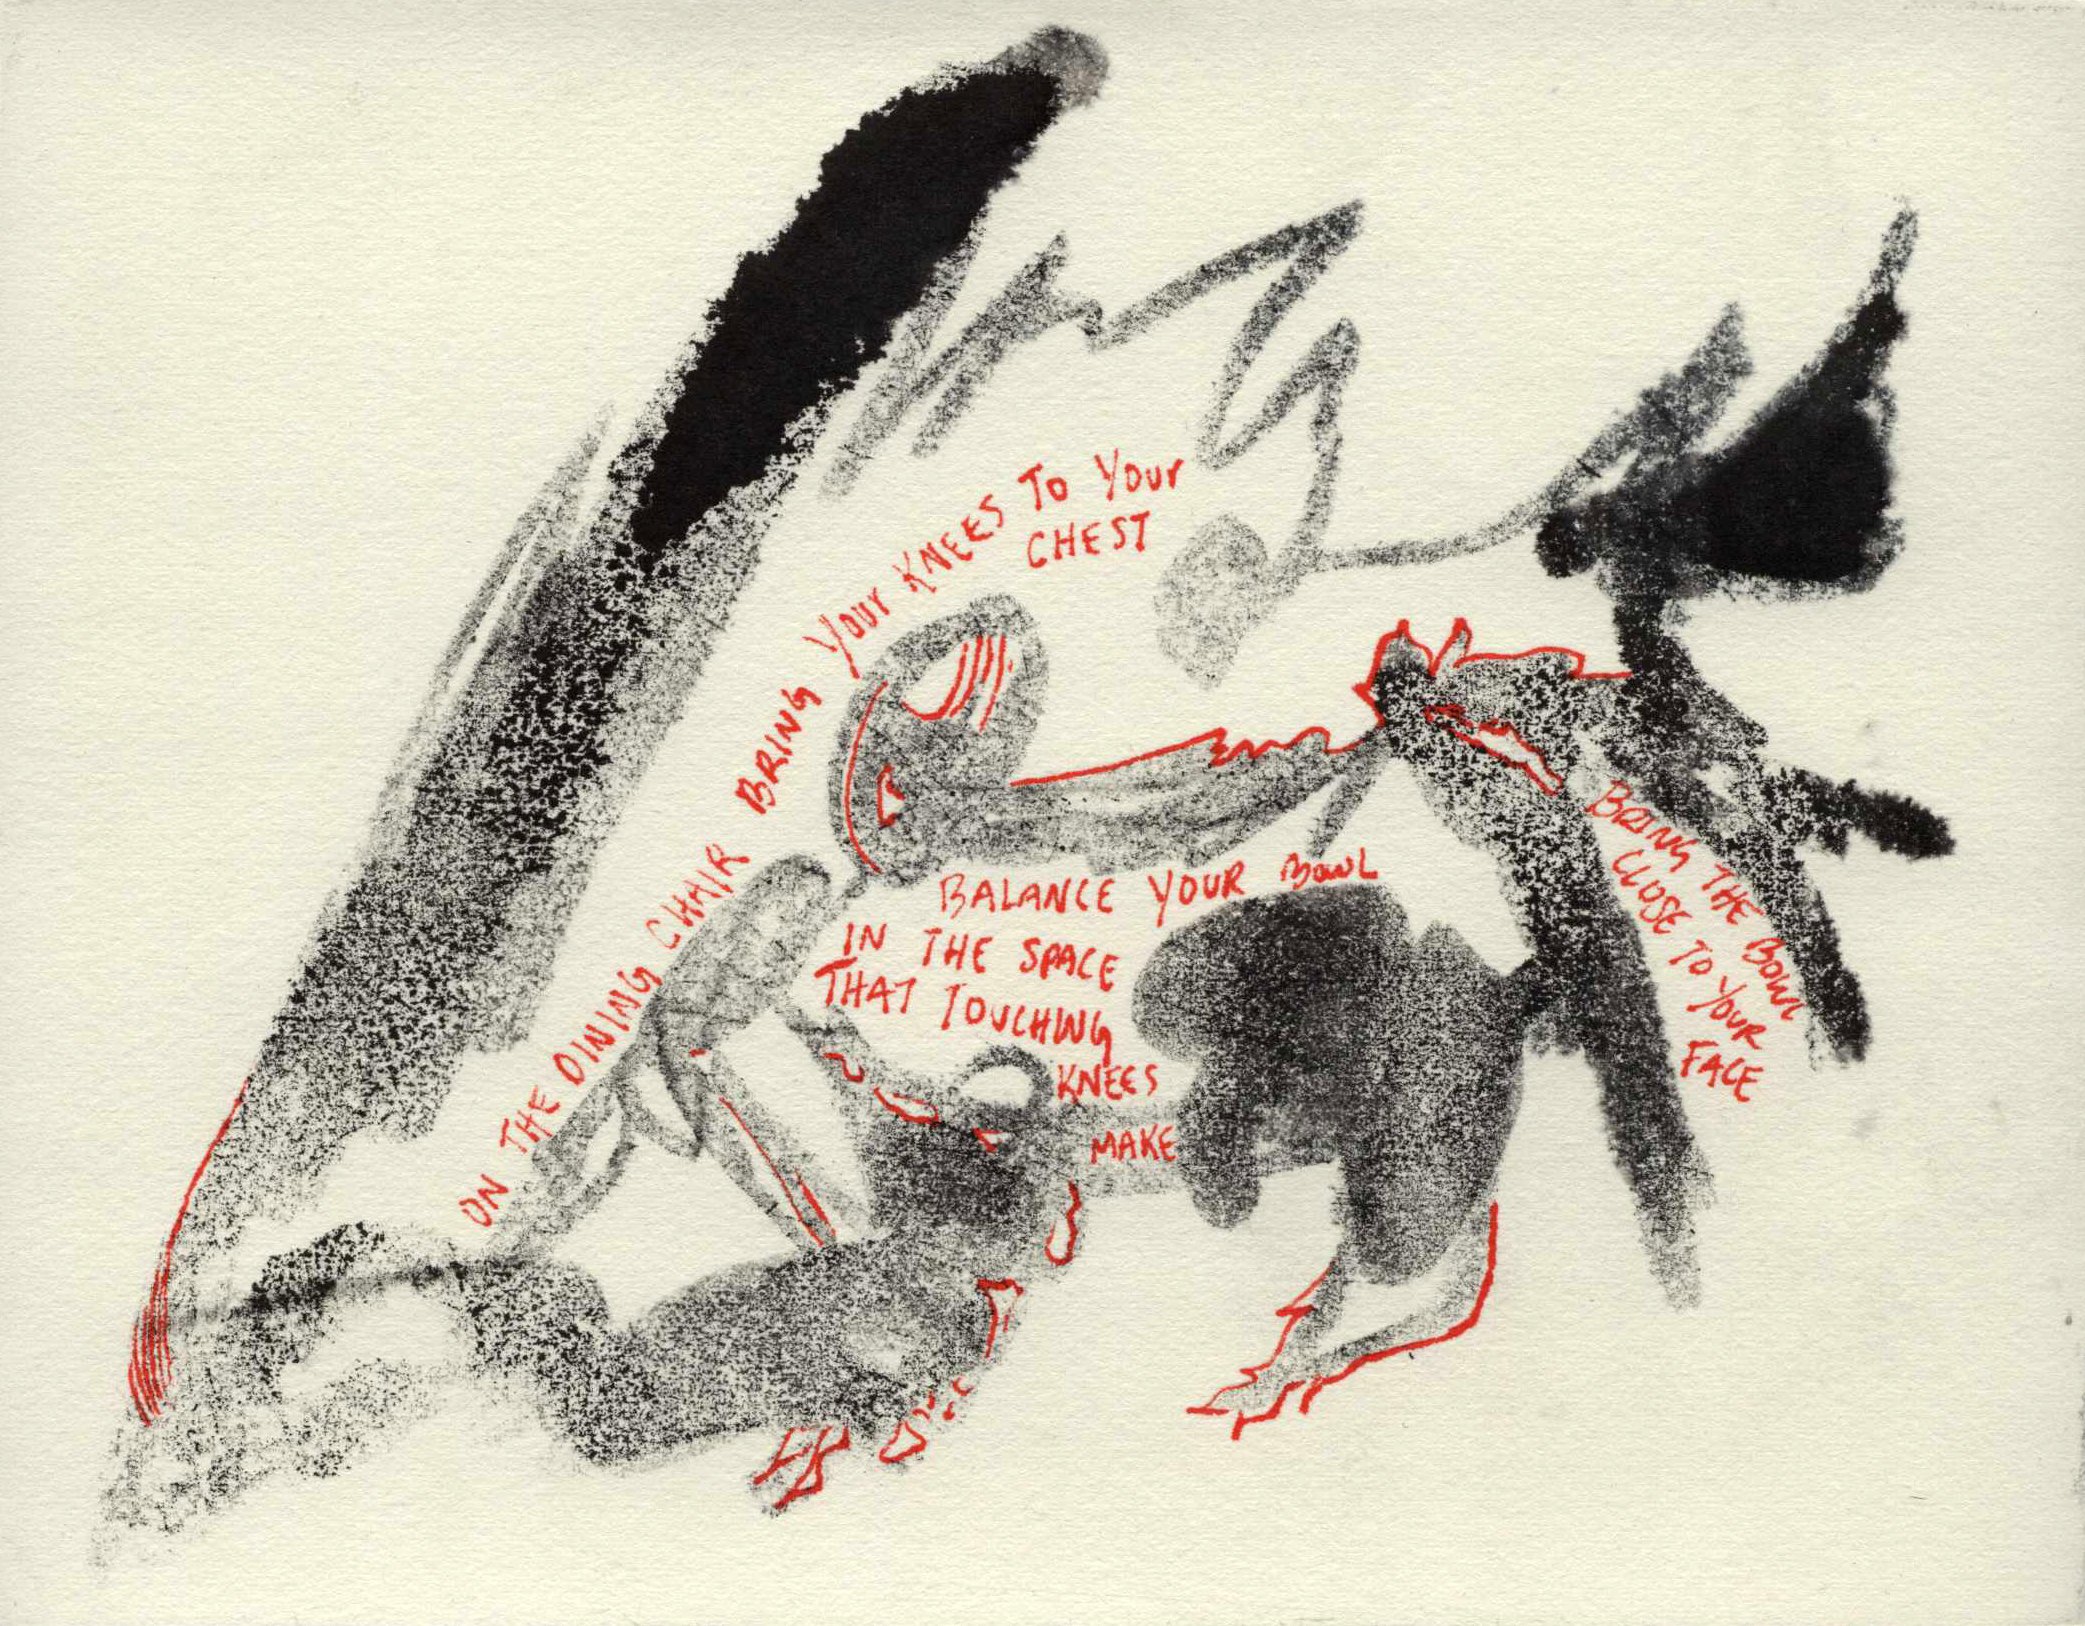 ON THE DINING CHAIR BRING YOUR KNEES TO YOUR
CHEST
BALANCE YOUR BOWL
IN THE SPACE
THAT TOUCHING
KNEES
MAKE
BRING THE BOWL
CLOSE TO YOUR
FACE